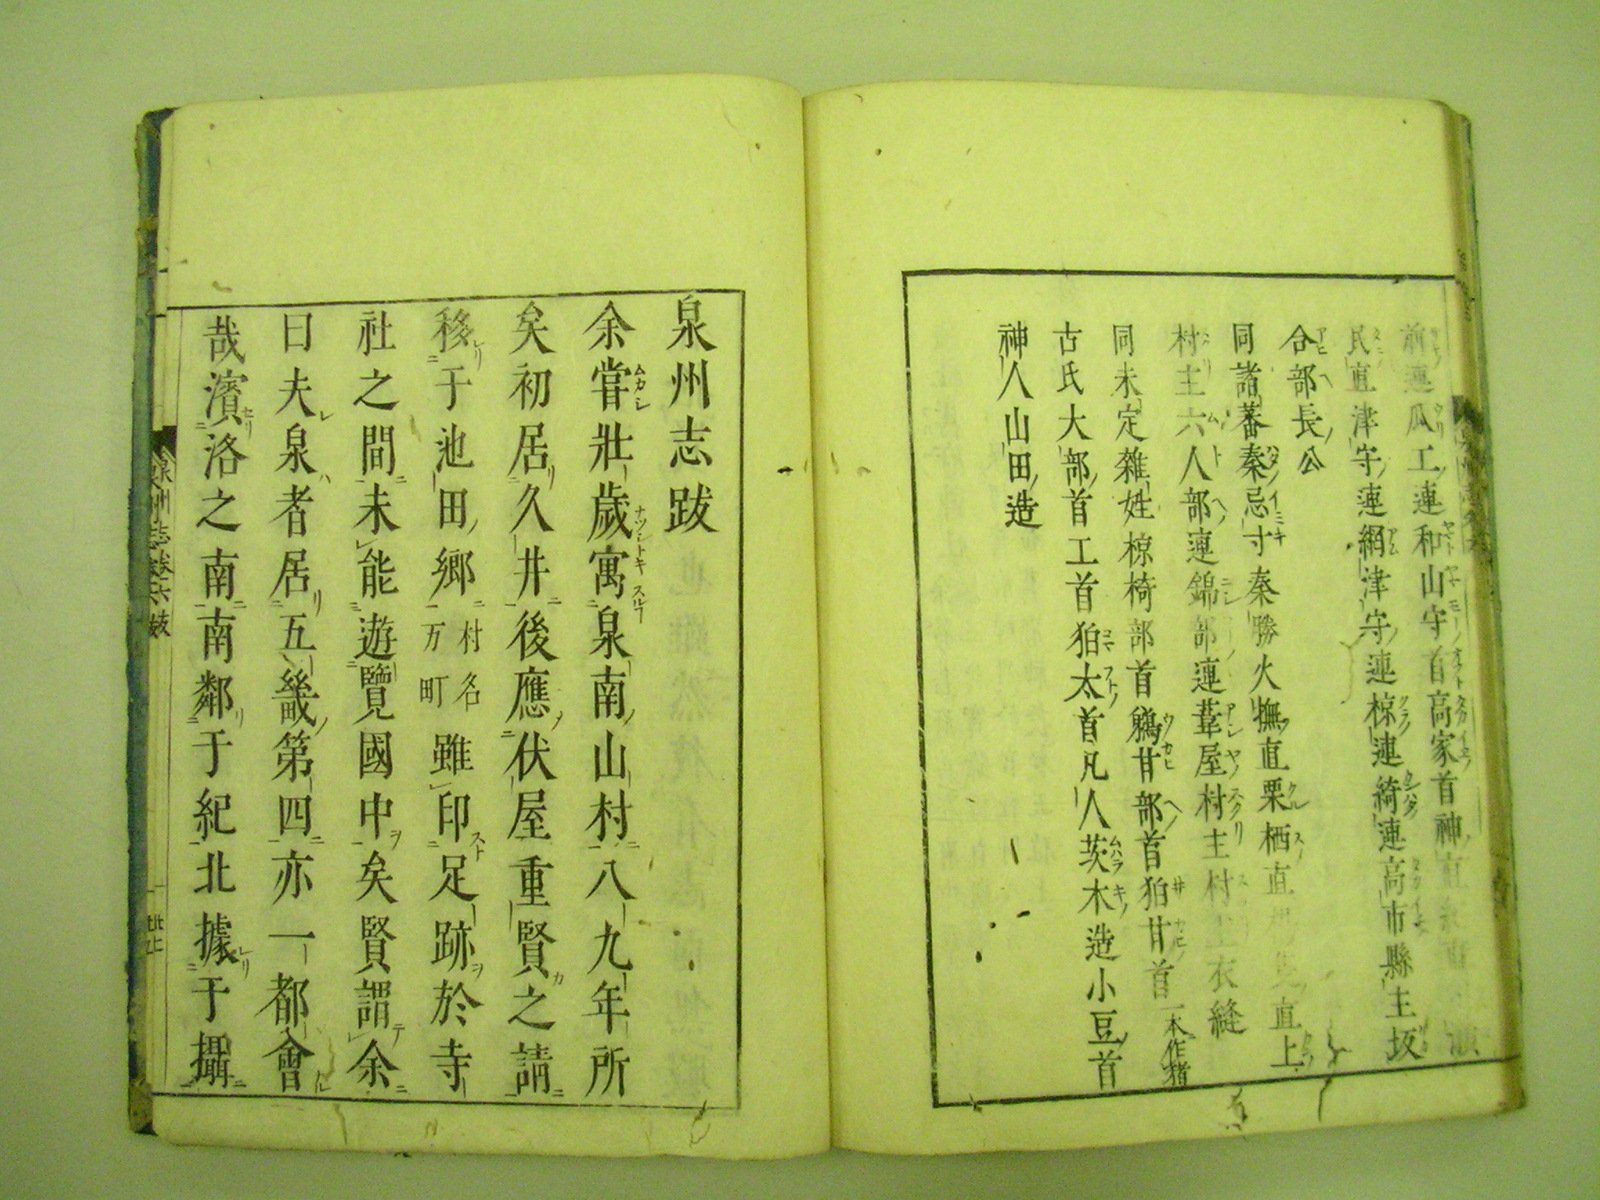 前連瓜工連和山守首高家首神直
民直津守連網津守連椋連綺連高市縣主坂
合部長公
同諸蕃秦忌寸秦勝火撫直栗栖直 直上
村主六人部連錦部連葦屋村主村主衣縫
同未定雜姓椋椅部首鵜甘部首狛甘首一本作猪
古氏大部首工首狛太首凡人茨木造小豆首
神人山田造
泉州志跋
余嘗壯歲寓泉南山村八九年所
矣初居久井後應伏屋重賢之請
移于池田鄉村名万町雖印足跡於寺
社之間未能遊覽國中矣賢謂余
曰夫泉者居五畿第四亦一都會
哉濱洛之南南鄰于紀北據于攝
泉州志卷六 跋